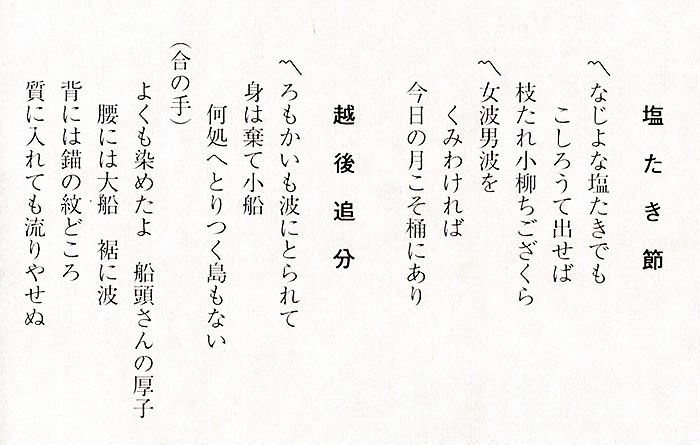 塩たき節
〽なじよな塩たきでも
こしろうて出せば
枝たれ小柳ちござくら
〽女波男波を
くみわければ
今日の月こそ桶にあり
越後追分
〽ろもかいも波にとられて
身は棄て小船
何処へとりつく島もない
(合の手)
よくも染めたよ　船頭さんの厚子
腰には大船　裾に波
背には錨の紋どころ
質に入れても流りやせぬ